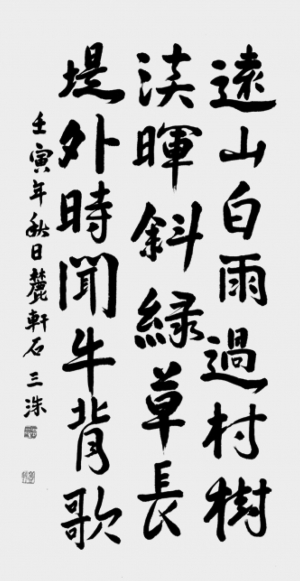 遠山白雨過村樹
淡暉斜緑草長
堤外時聞牛背歌
壬寅年秋日麓軒石三洙